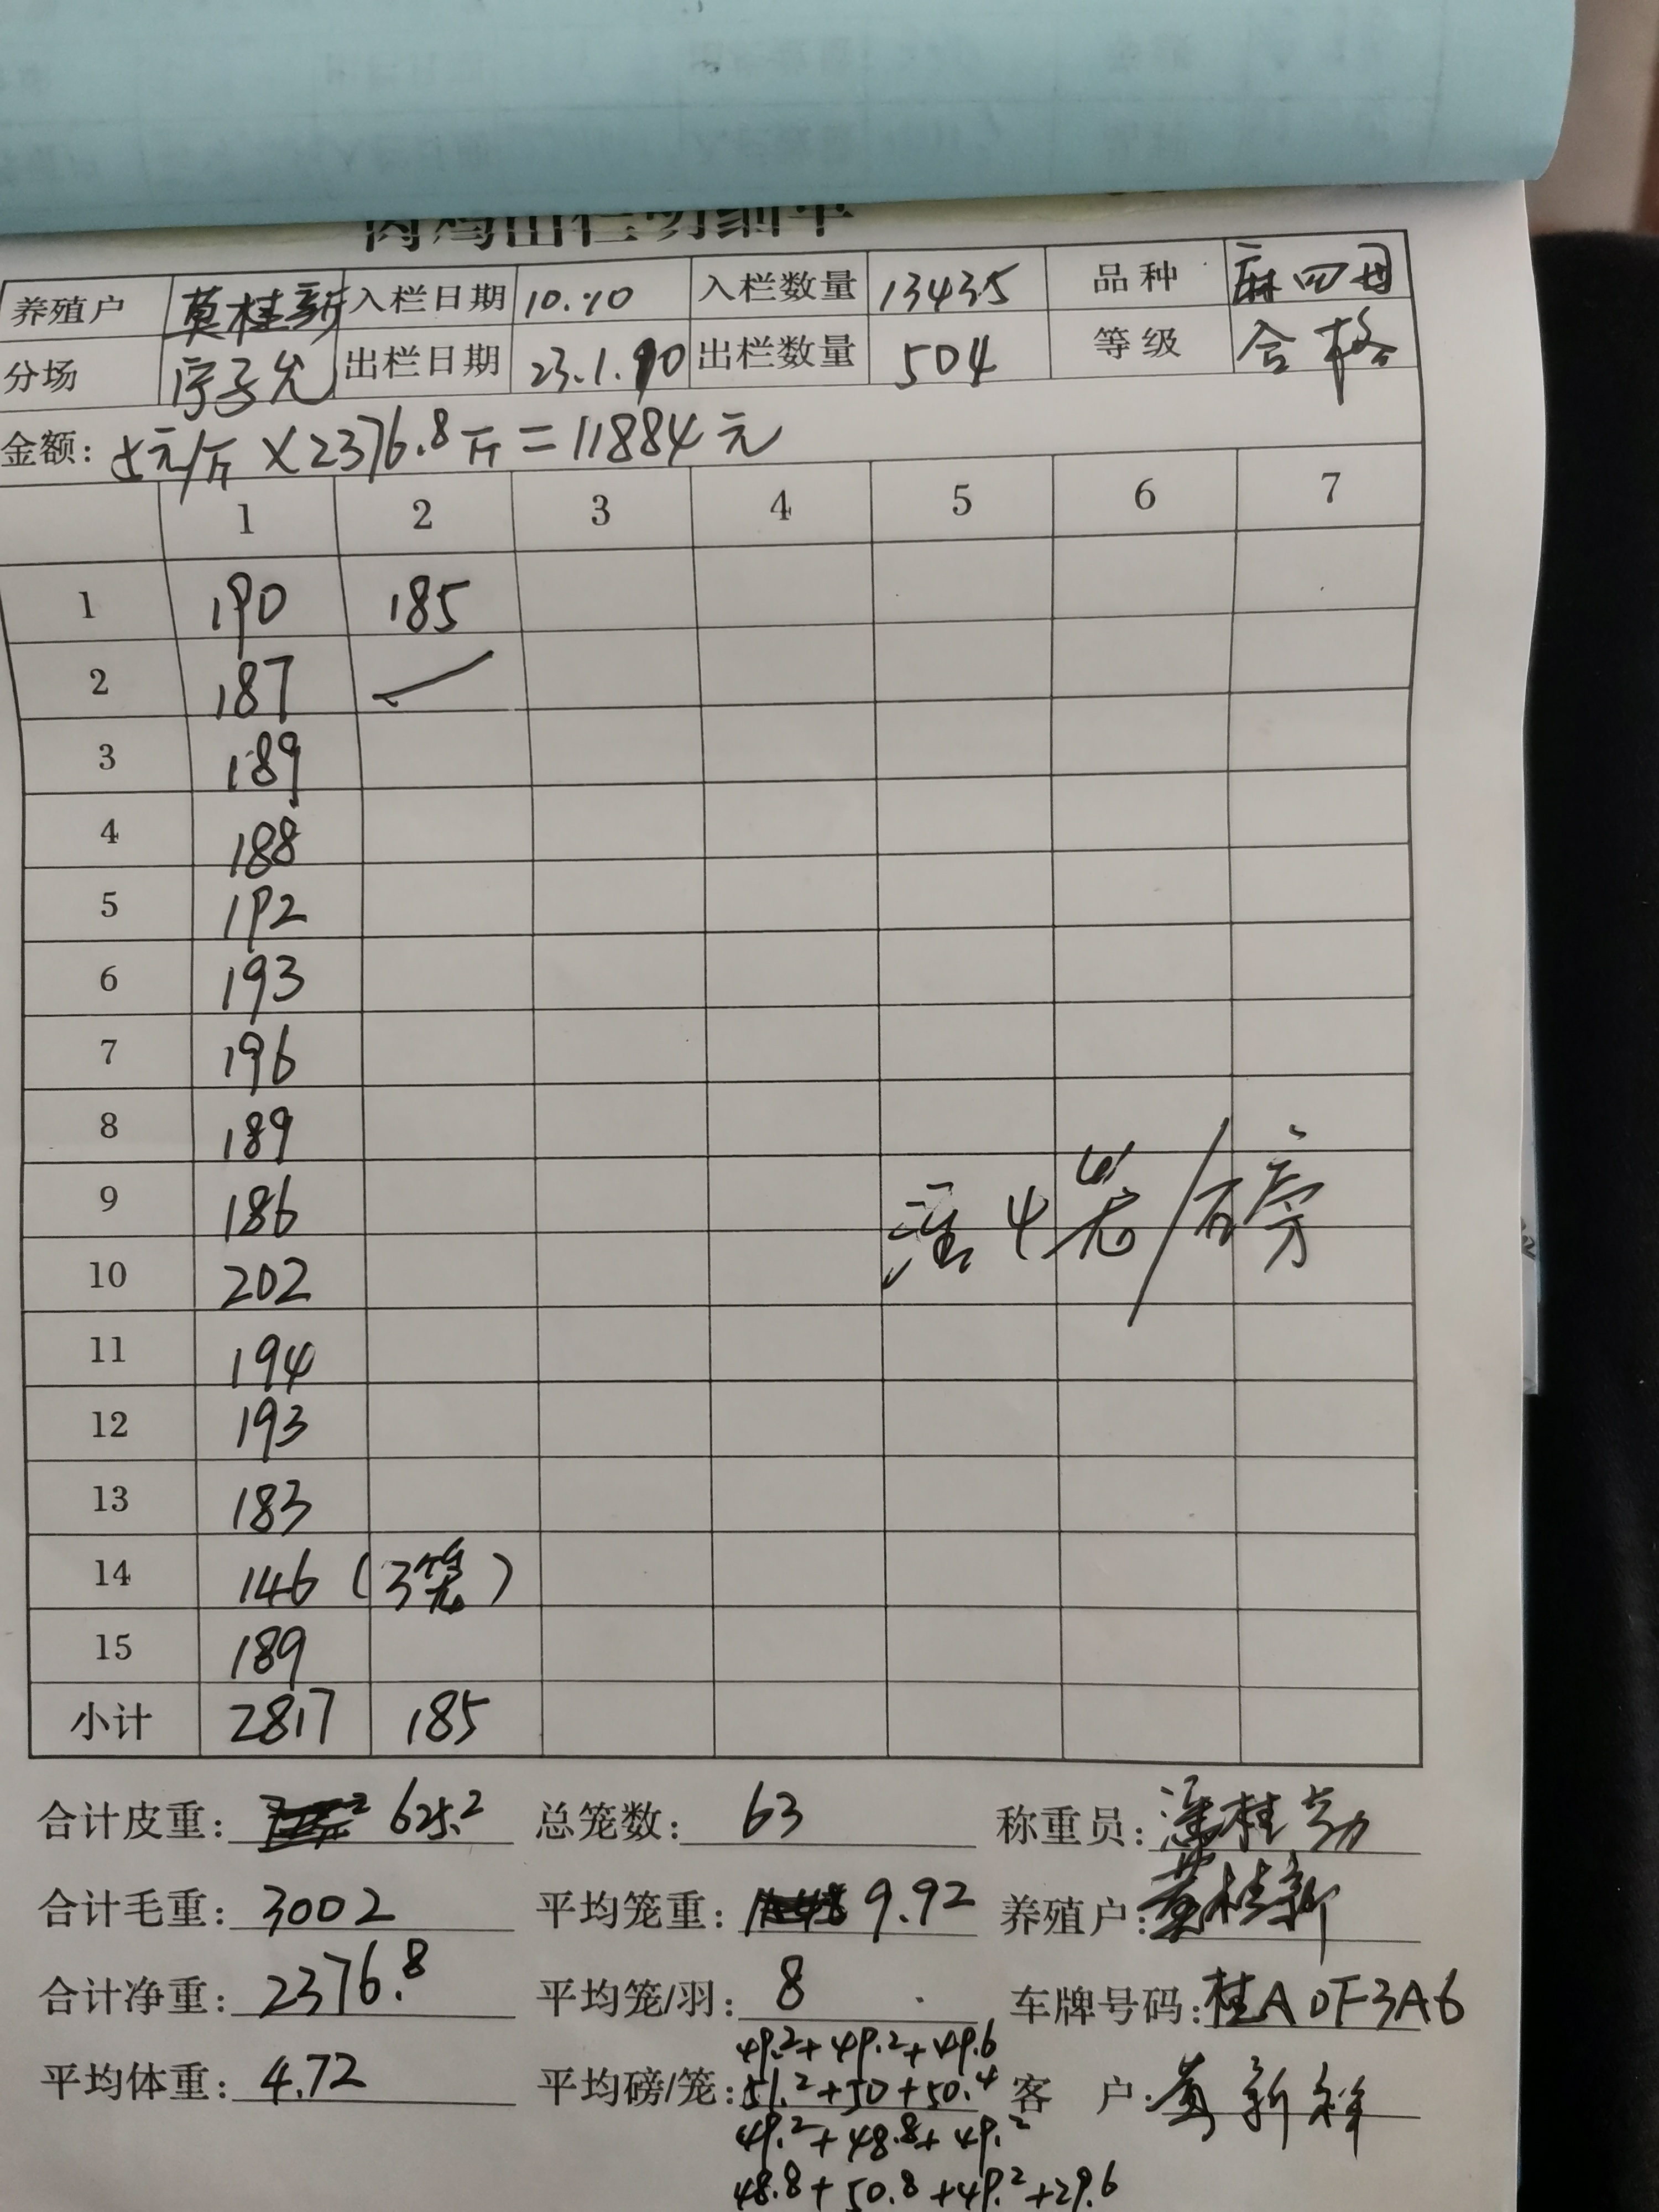 肉鸡出栏明细单
养殖户 莫桂新 入栏日期 10.10 入栏数量 13435 品种 麻四母
分场 出栏日期 23.1.10 出栏数量 504 等级 合格
金额: 5元/斤 ×2376.8斤=11884元
1 2 3 4 5 6 7
1 190 185
2 187
3 189
4 188
5 192
6 193
7 196
8 189
9 186
注4笼/磅
10 202
11 194
12 193
13 183
14 146 (3笼)
15 189
小计 2817 185
合计皮重: 625.2 总笼数: 63 称重员: 桂
合计毛重: 3002 平均笼重: 9.92 养殖户: 莫桂新
合计净重: 2376.8 平均笼/羽: 8 车牌号码: 桂A0F3A6
49.2+49.2+49.6
平均体重: 4.72 平均磅/笼: 51.2+50+50.4 客 户: 黄新祥
49.2+48.8+49.2
48.8+50.8+49.2+29.6